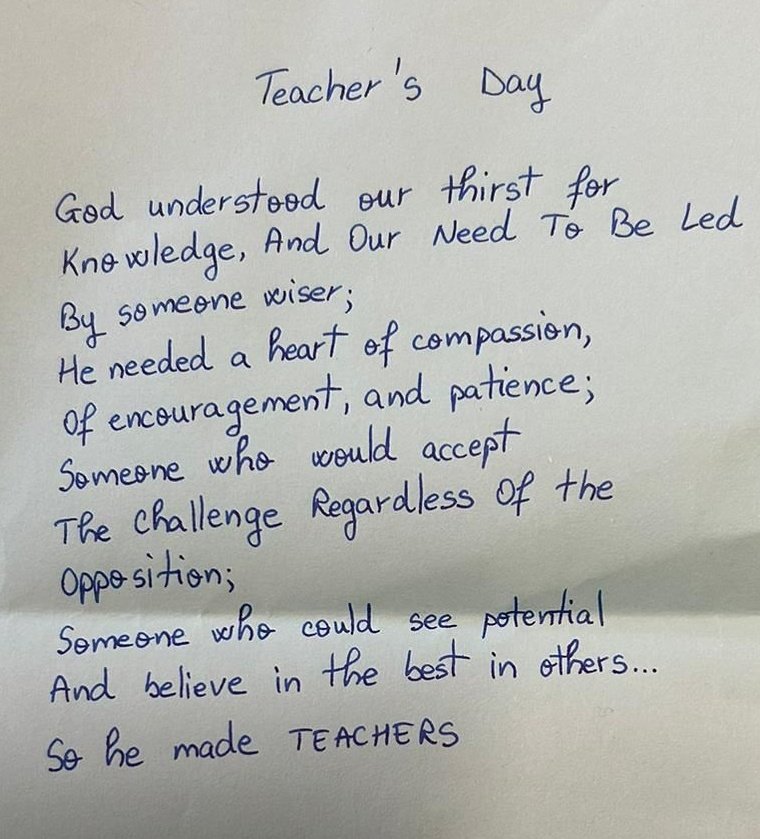 Teacher's Day
God understood our thirst for
Knowledge, And Our Need To Be Led
By someone wiser;
He needed a heart of compassion,
Of encouragement, and patience;
Someone who would accept
The Challenge Regardless Of the
Opposition;
Someone who could see potential
And believe in the best in others...
So he made TEACHERS